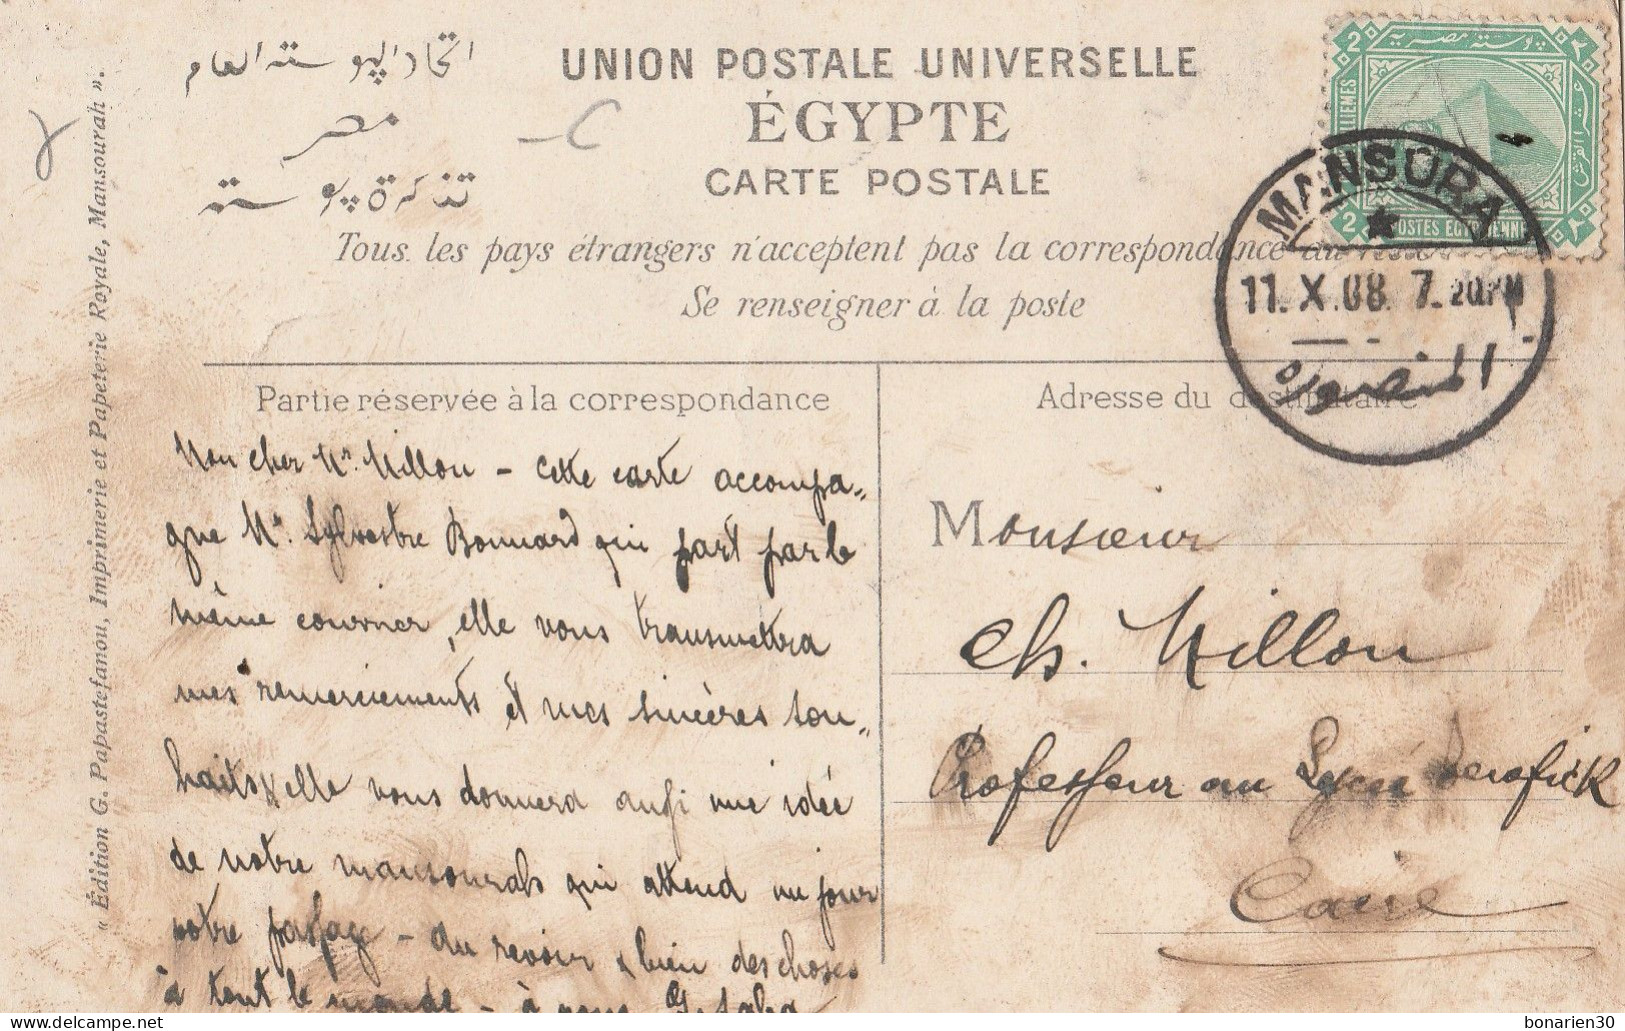 اتحاد البوسته العام
مصر
تذكرة بوسته
UNION POSTALE UNIVERSELLE
ÉGYPTE
CARTE POSTALE
Tous les pays étrangers n'acceptent pas la correspondance au
Se renseigner à la poste
« Édition G. Papastefanou, Imprimerie et Papeterie Royale, Mansourah ».
2 بوستة مصرية ٢
MILLIEMES
عشر القرش
2 POSTES EGYPTIENNES ٢
MANSURA
11. X .08. 7. 20.PM
المنصوره
Partie réservée à la correspondance
Adresse du destinataire
Mon cher Mr. Millon – cette carte accompa-
gne Mr. Sylvestre Bonnard qui part par le
même courrier, elle vous transmettra
mes remerciements et mes sincères sou-
haits, elle vous donnera aussi une idée
de notre mansourah qui attend un jour
votre passage – au revoir & bien des choses
à tout le monde – à vous G.
Monsieur
Ch. Millon
Professeur au Lycée
Caire
bonarien30